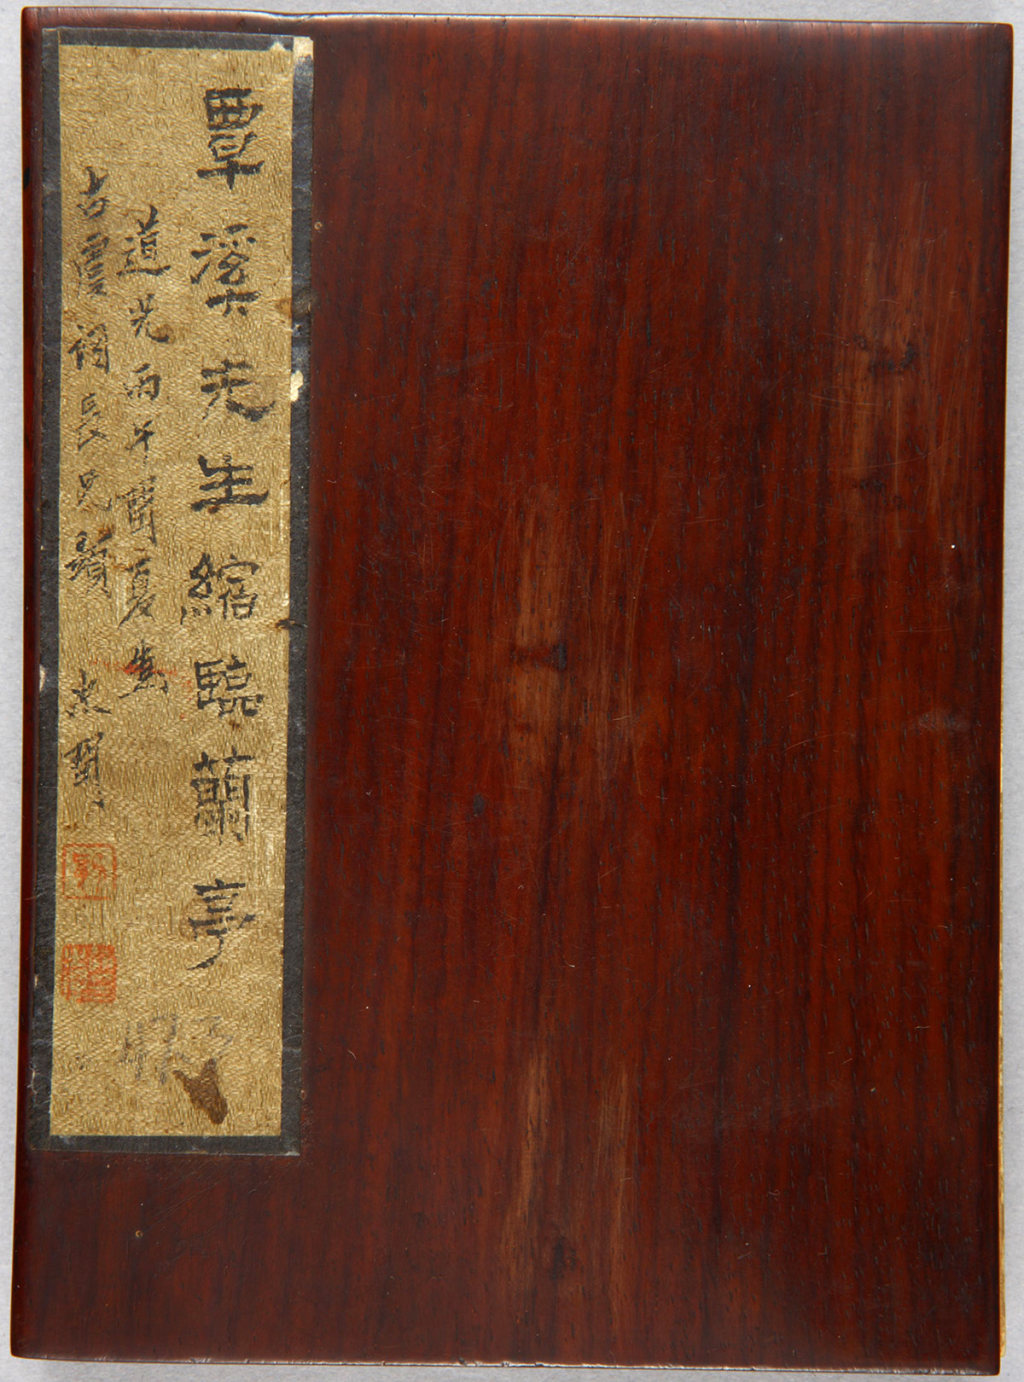 覃溪先生縮臨蘭亭
道光丙午閏夏為
古虞詞長兄題